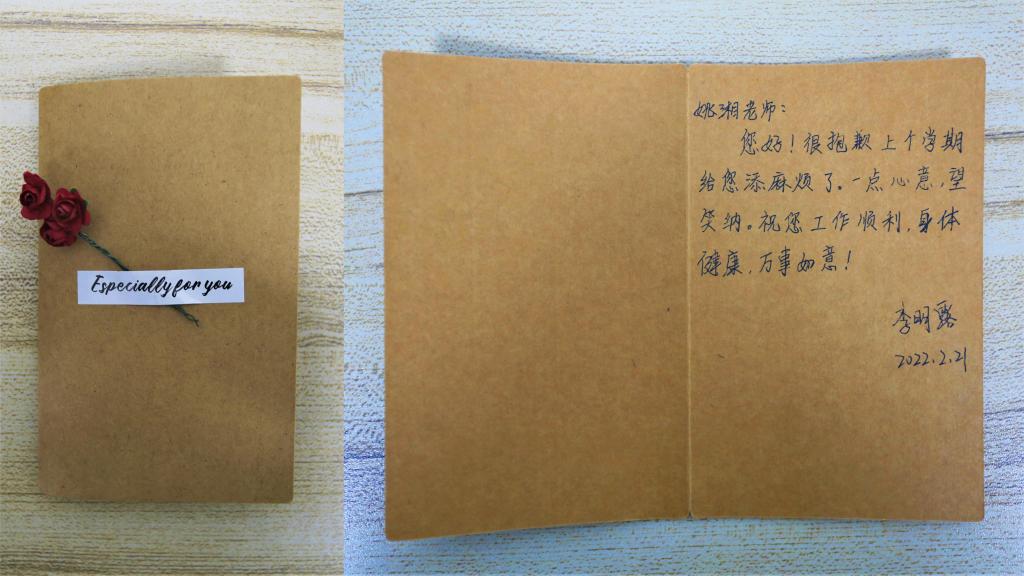 Especially for you
姚湘老师：
您好！很抱歉上个学期
给您添麻烦了。一点心意，望
笑纳。祝您工作顺利，身体
健康，万事如意！
李明露
2022.2.21